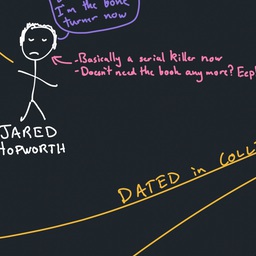 I'm the bone
turner now
- Basically a serial killer now
- Doesn't need the book any more? Eep!
JARED
HOPWORTH
DATED in COLL